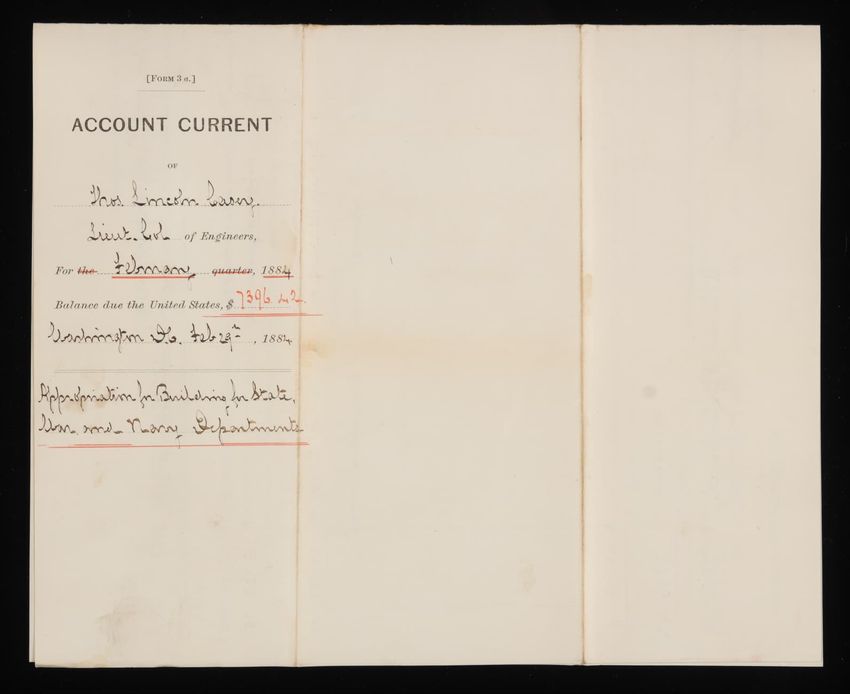 [FORM 3 a.]
ACCOUNT CURRENT
OF
Thos. Lincoln Casey.
Lieut. Col of Engineers,
For the February quarter, 1884
Balance due the United States, $ 7396.42.
Washington D.C. Feb 29th, 1884.
Appropriation for Building for State,
War and Navy Departments